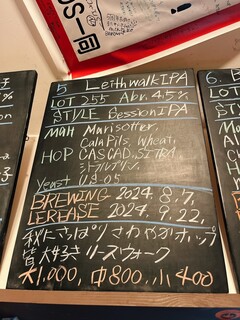 5 Leithwalk IPA
LOT 255 Abv. 4.5%
STYLE Session IPA
Malt Marisotter,
CaraPils, Wheat,
HOP CASCAD, SITRA,
Yeast US05
BREWING 2024. 8, 7,
LEREASE 2024. 9, 22,
秋にさっぱりさわやかホップ
皆大好きリースウォーク
大1,000, 中800, 小400
6.
LOT
STYLE